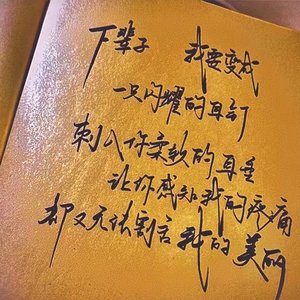 下辈子 我要变成
一只闪耀的耳钉
刺入你柔软的耳垂
让你感知我的疼痛
却又无法割舍我的美丽